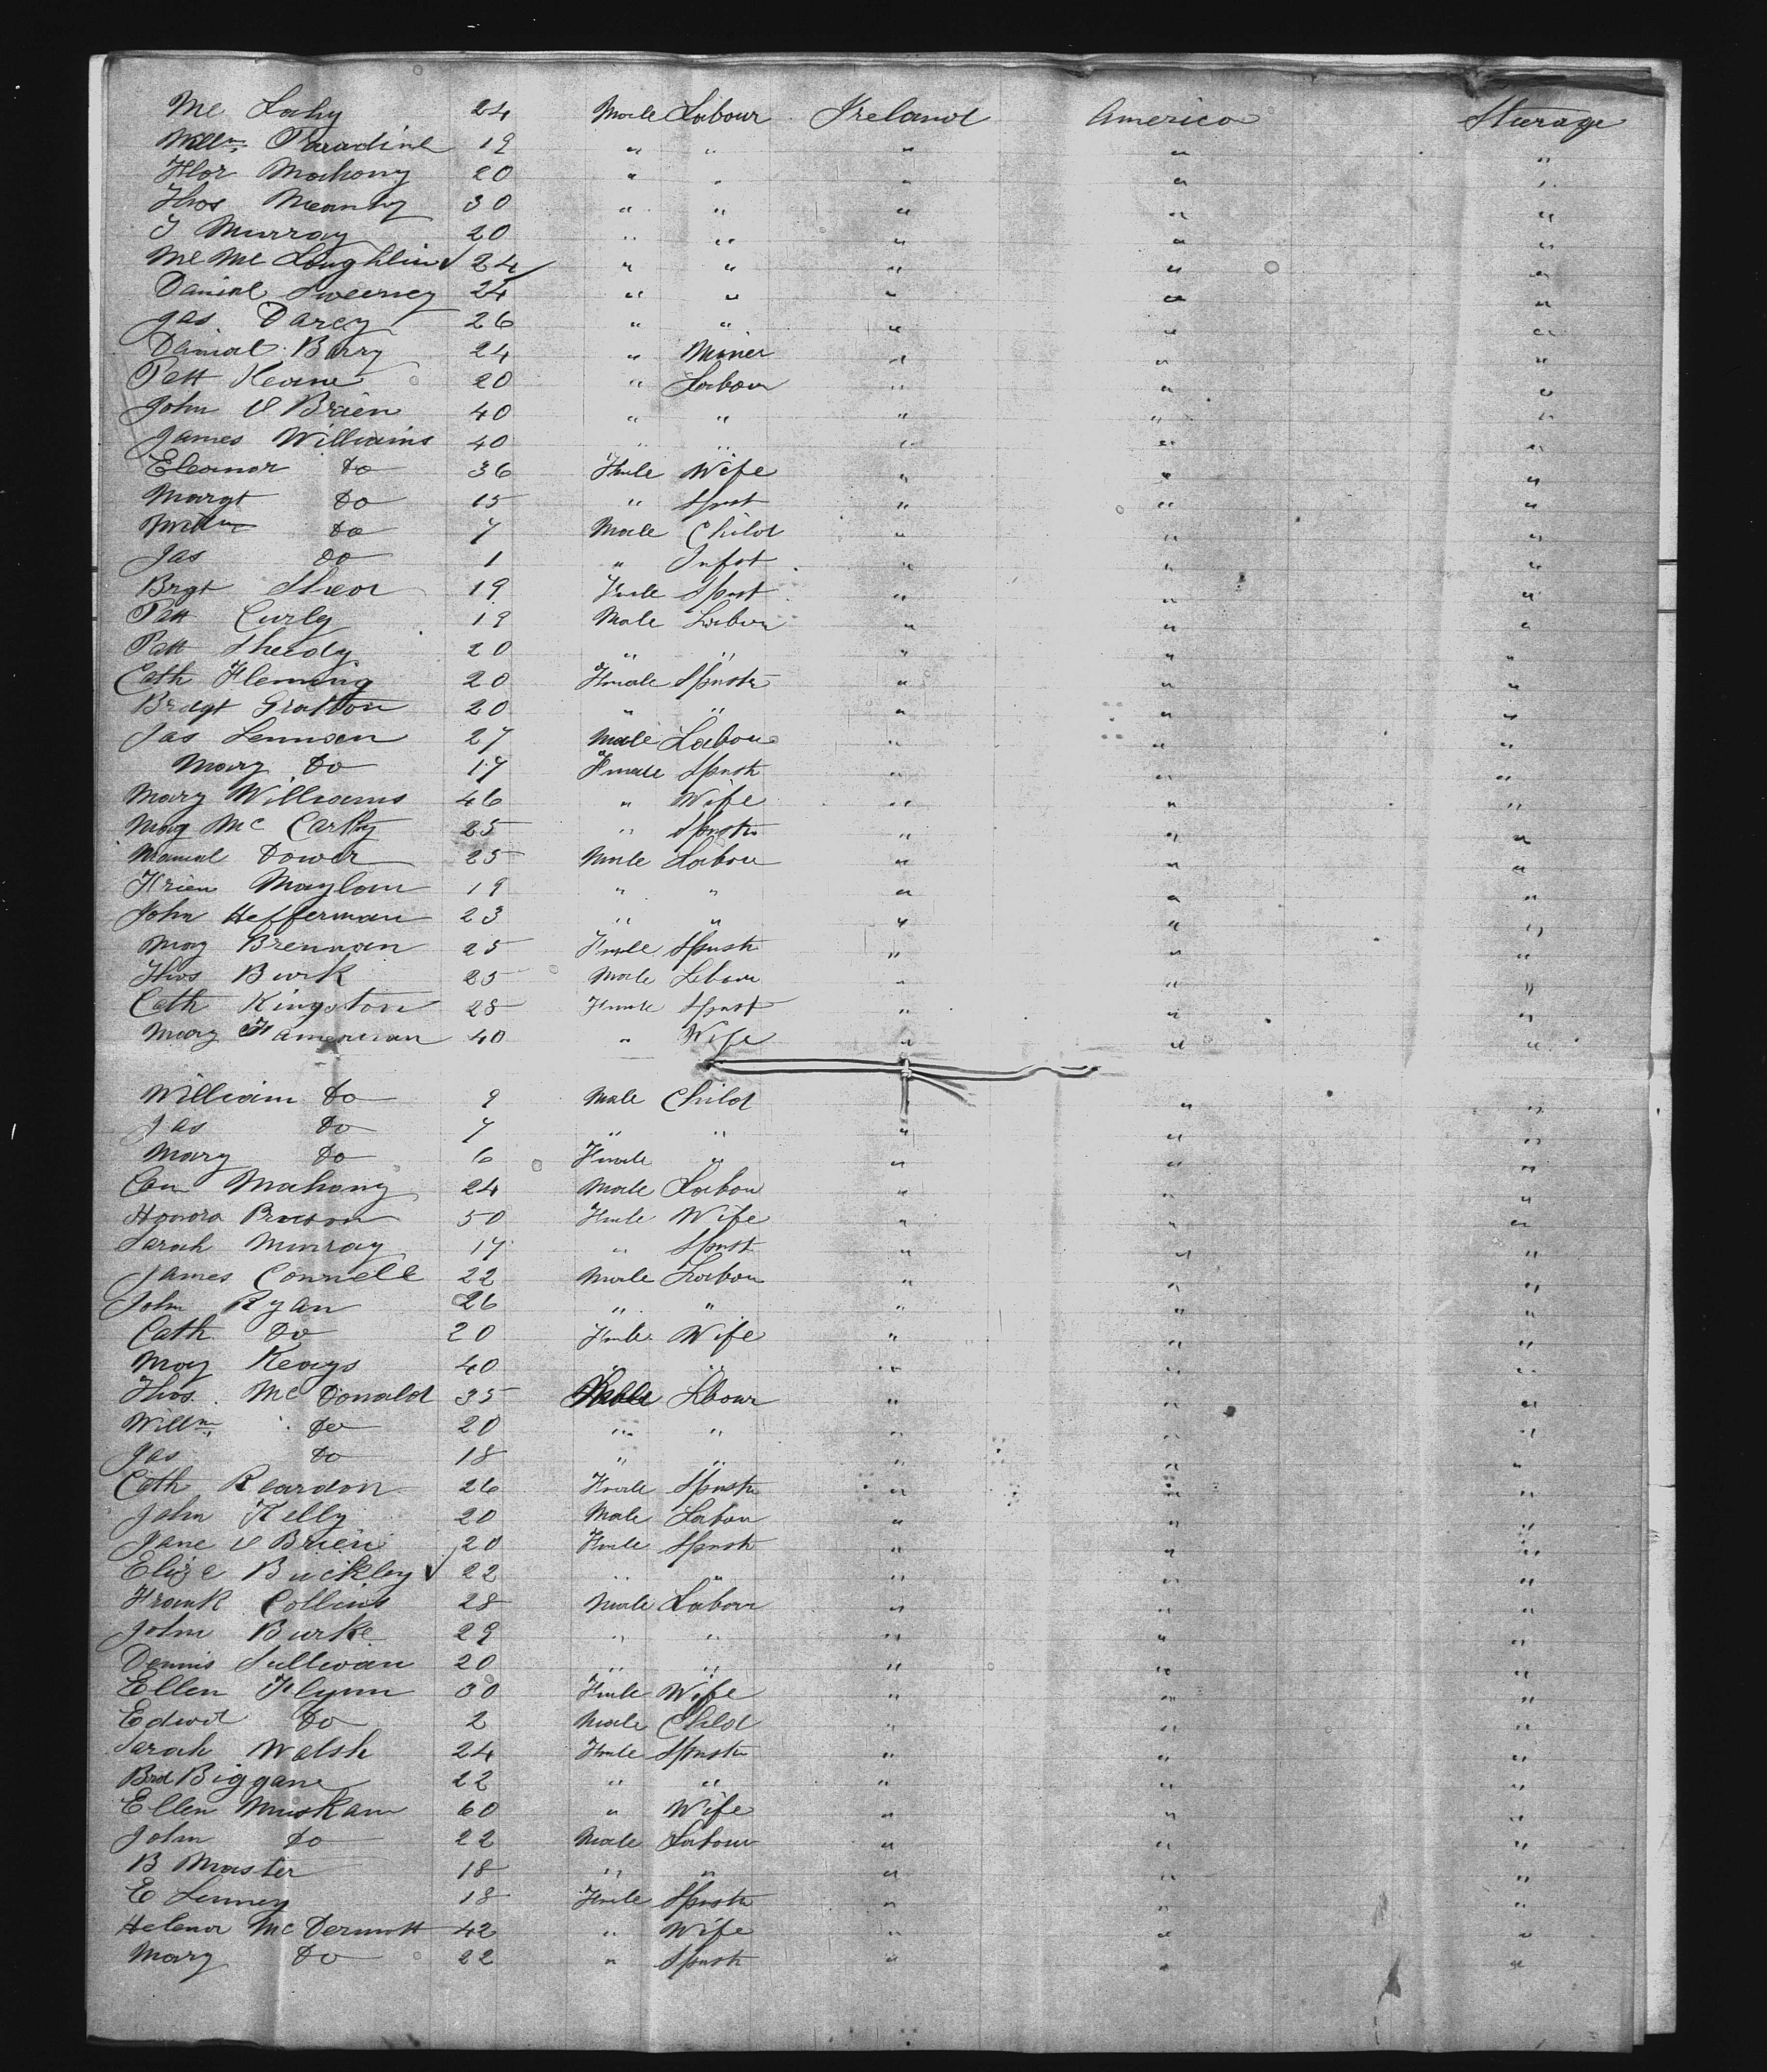 Ml Lahy 24 Male Labour Ireland America Sturage
Willm Paradine 19 " " " " "
Flor Mahony 20 " " " " "
Thos Meanny 30 " " " " "
J Murray 20 " " " " "
Ml Mc Loughlin √ 24 " " " " "
Daniel Sweeney 24 " " " " "
Jas Darcy 26 " " " " "
Danial Barry 24 " Miner " " "
Patt Keane 20 " Labour " " "
John O Brien 40 " " " " "
James Williams 40 " " " " "
Eleanor Do 36 Fmle Wife " " "
Margt Do 15 " Spnst " " "
Willm Do 7 Male Child " " "
Jas Do 1 " Infat " " "
Brgt Shea 19 Fmle Spnst " " "
Patt Curly 19 Male Labour " " "
Patt Sheedy 20 " " " " "
Cath Fleming 20 Fmale Spnstr " " "
Bridgt Grattan 20 " " " " "
Jas Lennon 27 Male Labou " " "
Mary Do 17 Fmale Spnstr " " "
Mary Williams 46 " Wife " " "
May Mc Carthy 25 " Spnstr " " "
Dower 25 Male Labou " " "
19 " " " " "
John Hefferman 23 " " " " "
May Brennan 25 Fmale Spnstr " " "
Thos Burk 25 Male Labour " " "
Cath Kingston 28 Fmale Spnst " " "
Mary 40 " Wife " " "
William Do 9 Male Child " " "
Jas Do 7 " " " " "
Mary Do 6 Fmale " " " "
Con Mahony 24 Male Labou " " "
Honora 50 Fmle Wife " " "
Sarah Murray 17 " Spnst " " "
James Connell 22 Male Labou " " "
John Ryan 26 " " " " "
Cath Do 20 Fmle Wife " " "
May Keays 40 " " " " "
Thos Mc Donald 35 Male Lbour " " "
Willm Do 20 " " " " "
Jas Do 18 " " " " "
Cath Reardon 26 Fmale Spnstr " " "
John Kelly 20 Male Labou " " "
Jane O Brien 20 Fmle Spnstr " " "
Eliza Buckley √ 22 " " " " "
Frank Collins 28 Male Labour " " "
John Burke 29 " " " " "
Dennis Sullivan 20 " " " " "
Ellen Flynn 30 Fmle Wife " " "
Edwd Do 2 Male Child " " "
Sarah Walsh 24 Fmle Spnstr " " "
Brd Biggane 22 " " " " "
Ellen 60 " Wife " " "
John Do 22 Male Labour " " "
B Master 18 " " " " "
E Lenney 18 Fmle Spnstr " " "
Helenor Mc Dermott 42 " Wife " " "
Mary Do 22 " Spnstr " " "